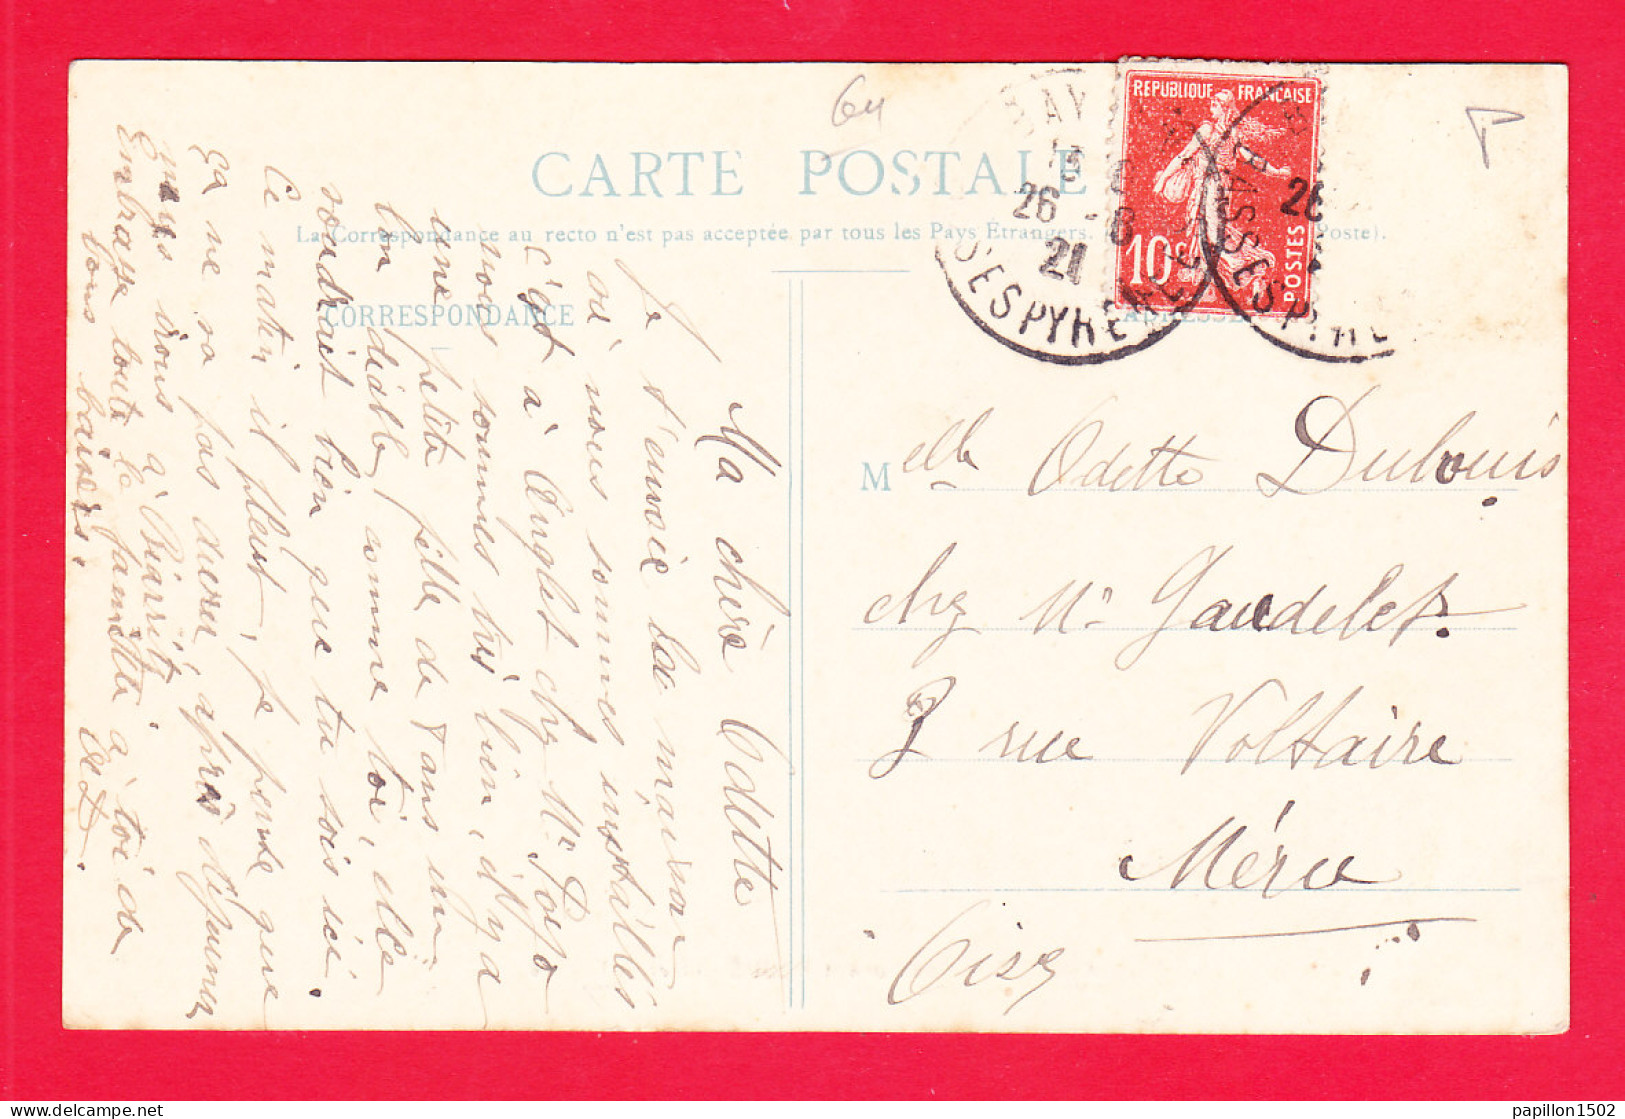 64
CARTE POSTALE
La Correspondance au recto n'est pas acceptée par tous les Pays Étrangers. Poste).
CORRESPONDANCE
REPUBLIQUE FRANÇAISE
10c
POSTES
BAY
26 - 6
21
SES PYREN
BASSES PYRE
26
Ma chère Odette
Je t'envoie la maison
où nous sommes installés
c'est à Anglet chez Mr
nous sommes très bien, il y a
une petite fille de 7 ans un
bon diable, comme toi, elle
voudrait bien que tu sois ici.
Ce matin il pleut, je pense que
ça ne va pas durer, après déjeuner
nous irons à Biarritz
Embrasse toute la famille à toi de
bons baisers.
M elle Odette Dubouis
chez Mr Gaudelet
3 rue Voltaire
Méru
Oise
papillon1502